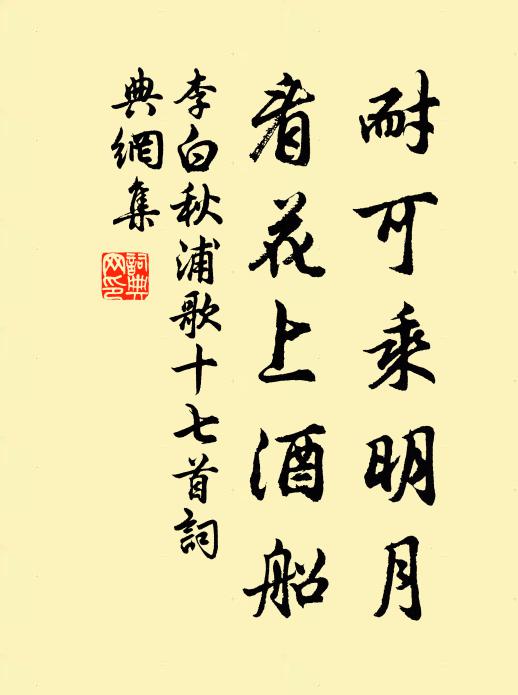 耐可乘明月
看花上酒船
李白秋浦歌十七首詞
典網集
詞典网印